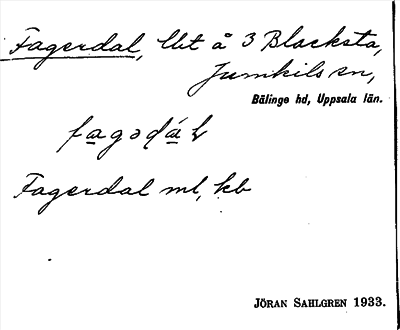 Fagerdal, lht å 3 Blacksta,
Jumkils sn,
Bälinge hd, Uppsala län.
fagədál
Fagerdal ml, kb
JÖRAN SAHLGREN 1933.